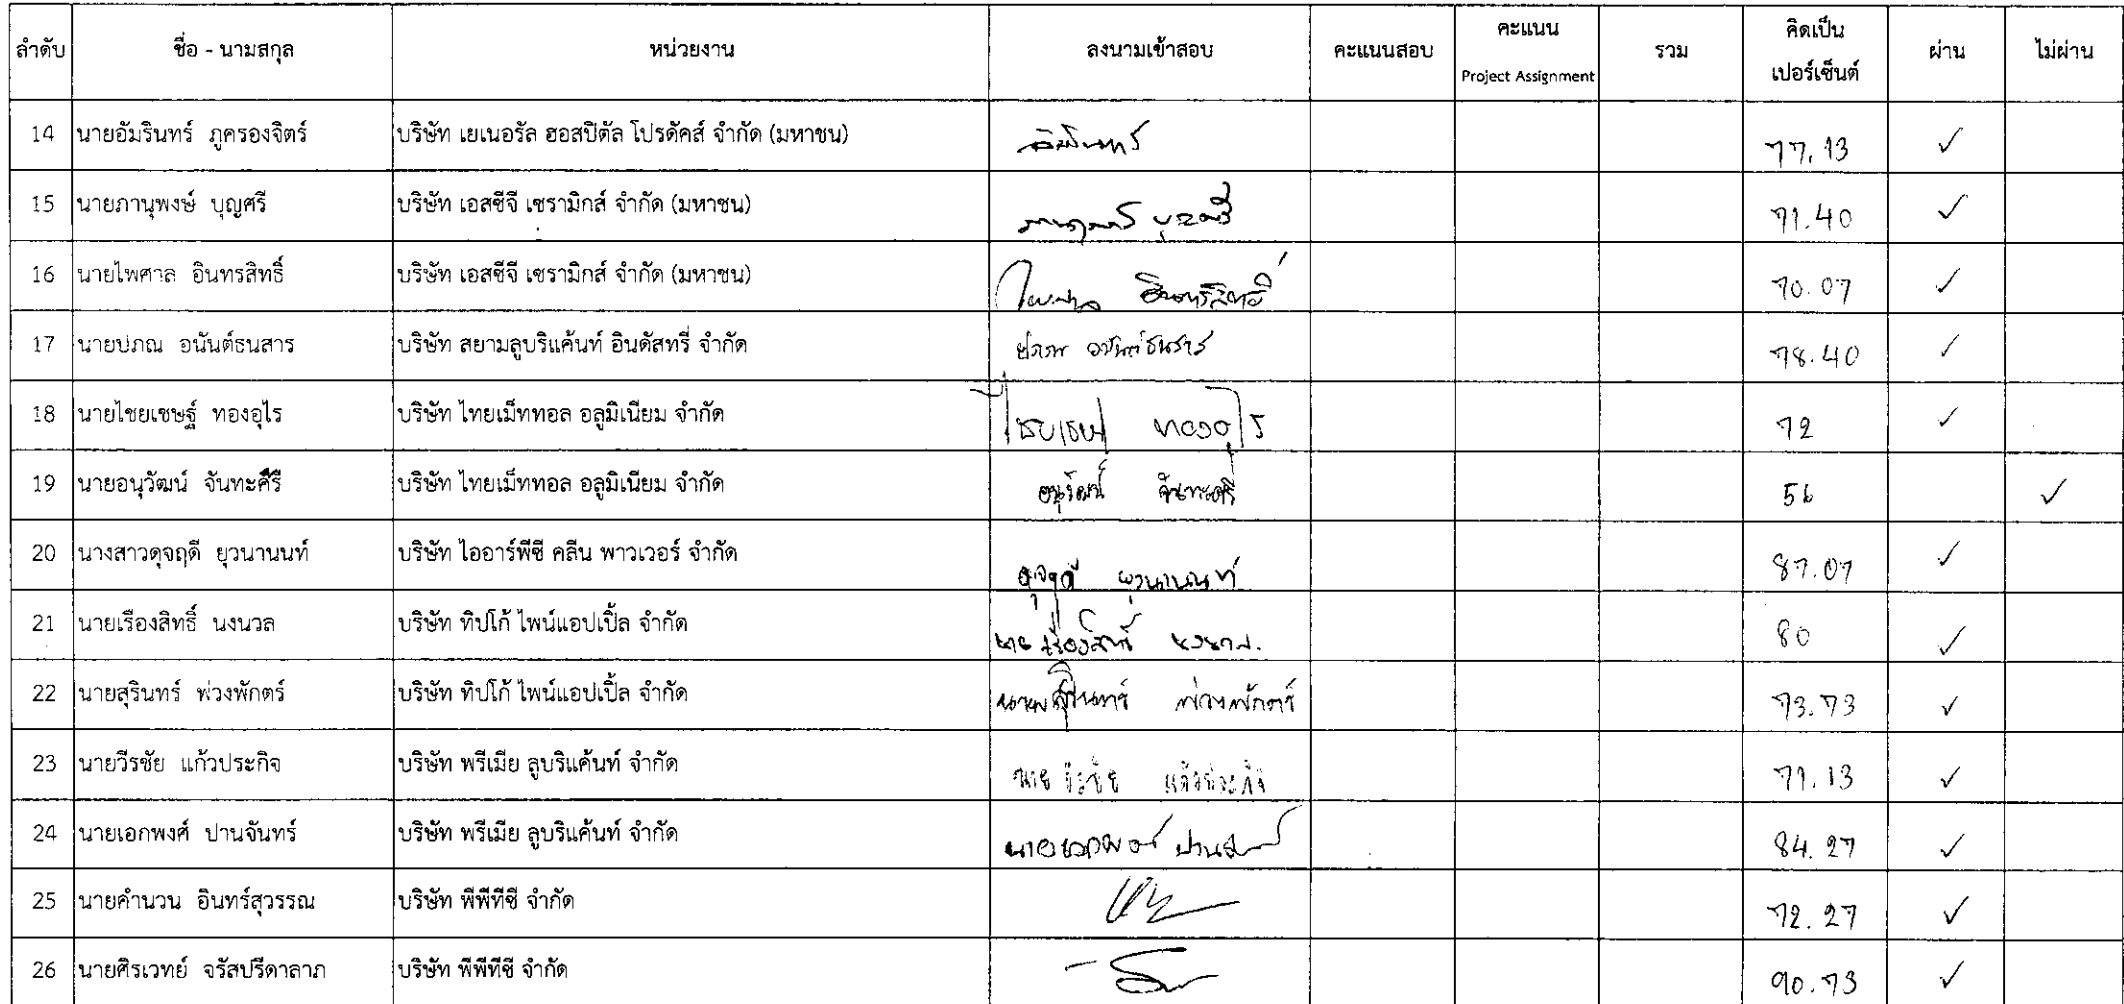 ลำดับ ชื่อ - นามสกุล หน่วยงาน ลงนามเข้าสอบ คะแนนสอบ คะแนน Project Assignment รวม คิดเป็น เปอร์เซ็นต์ ผ่าน ไม่ผ่าน
14 นายอัมรินทร์ ภูครองจิตร์ บริษัท เยเนอรัล ฮอสปิตัล โปรดัคส์ จำกัด (มหาชน) อัมรินทร์ 77.13 ✓
15 นายภานุพงษ์ บุญศรี บริษัท เอสซีจี เซรามิกส์ จำกัด (มหาชน) 71.40 ✓
16 นายไพศาล อินทรสิทธิ์ บริษัท เอสซีจี เซรามิกส์ จำกัด (มหาชน) ไพศาล อินทรสิทธิ์ 70.07 ✓
17 นายปภณ อนันต์ธนสาร บริษัท สยามลูบริแค้นท์ อินดัสทรี่ จำกัด ปภณ อนันต์ธนสาร 78.40 ✓
18 นายไชยเชษฐ์ ทองอุไร บริษัท ไทยเม็ททอล อลูมิเนียม จำกัด ไชยเชษฐ์ ทองอุไร 72 ✓
19 นายอนุวัฒน์ จันทะศิรี บริษัท ไทยเม็ททอล อลูมิเนียม จำกัด อนุวัฒน์ จันทะศรี 56 ✓
20 นางสาวดุจฤดี ยุวนานนท์ บริษัท ไออาร์พีซี คลีน พาวเวอร์ จำกัด ดุจฤดี ยุวนานนท์ 87.07 ✓
21 นายเรืองสิทธิ์ นงนวล บริษัท ทิปโก้ ไพน์แอปเปิ้ล จำกัด นายเรืองสิทธิ์ นงนวล 80 ✓
22 นายสุรินทร์ พ่วงพักตร์ บริษัท ทิปโก้ ไพน์แอปเปิ้ล จำกัด นายสุรินทร์ พ่วงพักตร์ 73.73 ✓
23 นายวีรชัย แก้วประกิจ บริษัท พรีเมีย ลูบริแค้นท์ จำกัด นาย วีรชัย แก้วประกิจ 71.13 ✓
24 นายเอกพงศ์ ปานจันทร์ บริษัท พรีเมีย ลูบริแค้นท์ จำกัด นายเอกพงศ์ ปานจันทร์ 84.27 ✓
25 นายคำนวน อินทร์สุวรรณ บริษัท พีพีทีซี จำกัด 72.27 ✓
26 นายศิรเวทย์ จรัสปรีดาลาภ บริษัท พีพีทีซี จำกัด 90.73 ✓